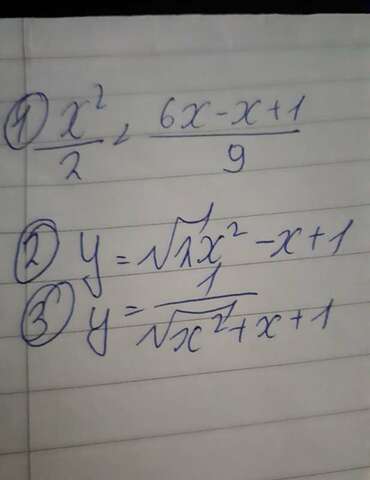 1) x²/2 < (6x-x+1)/9
2) y = √1x² -x+1
3) y = 1/(√x²+x+1)